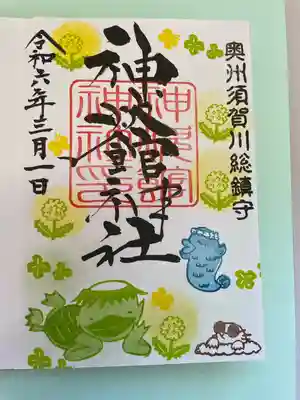 奥州須賀川総鎮守
神炊館神社
神炊館
神社印
令和六年三月一日